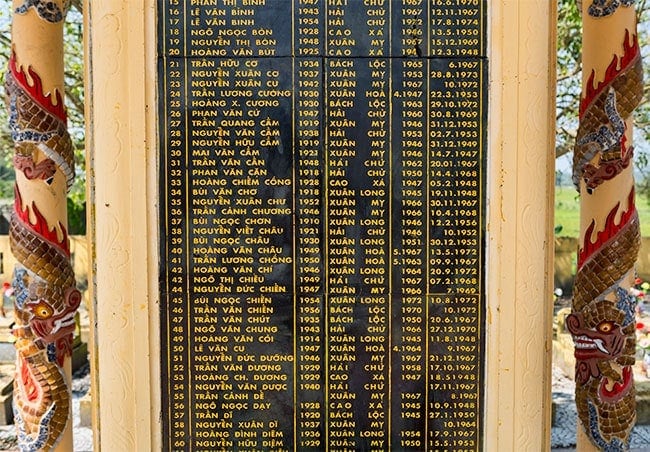 15 PHAN THỊ BÌNH 1947 HẢI CHỮ 1967 16.6.1970
16 LÊ VĂN BÌNH HẢI CHỮ 1967 12.11.1967
17 LÊ VĂN BÌNH 1954 HẢI CHỮ 1972 17.8.1974
18 NGÔ NGỌC BÔN 1928 CAO XÁ 1946 13.5.1950
19 NGUYỄN THỊ BÔN 1948 XUÂN MỴ 1967 15.12.1969
20 HOÀNG VĂN BÚT 1925 CAO XÁ 12.3.1948
21 TRẦN HỮU CƠ 1934 BÁCH LỘC 1965 6.1967
22 NGUYỄN XUÂN CƠ 1937 XUÂN MỴ 28.8.1973
23 NGUYỄN XUÂN CU 1942 XUÂN MỴ 10.1972
24 TRẦN LƯƠNG CƯỜNG 1930 XUÂN HOÀ 4.1947 22.3.1953
25 HOÀNG X. CƯƠNG 1930 BÁCH LỘC 1963 29.10.1972
26 PHAN VĂN CỨ 1947 HẢI CHỮ 1960 30.8.1969
27 TRẦN QUANG CẦM 1919 XUÂN MỴ 1946 31.12.1953
28 NGUYỄN VĂN CẦM 1938 HẢI CHỮ 1953 02.7.1953
29 NGUYỄN HỮU CẦM XUÂN MỴ 1949 31.12.1949
30 MAI VĂN CẦM 1923 XUÂN MỴ 1946 14.7.1947
31 TRẦN VĂN CẦN 1948 HẢI CHỮ 1962 20.01.1967
32 PHAN VĂN CẬN HẢI CHỮ 1950 14.4.1968
33 HOÀNG CHIẾM CỐNG 1928 CAO XÁ 1947 05.2.1948
34 BÙI VĂN CHỢ 1918 XUÂN LONG 1945 19.11.1948
35 NGUYỄN XUÂN CHƯ 1952 XUÂN MỴ 1966 30.11.1967
36 TRẦN CẢNH CHƯƠNG 1946 XUÂN MỴ 1966 10.4.1968
37 BÙI NGỌC CHƠN 1910 XUÂN LONG 1946 12.2.1950
38 NGUYỄN VIẾT CHÂU 1921 HẢI CHỮ 1946 10.1952
39 BÙI NGỌC CHÂU 1930 XUÂN LONG 1951 30.12.1953
40 HOÀNG VĂN CHÂU 1949 XUÂN HOÀ 5.1967 13.5.1972
41 TRẦN LƯƠNG CHỒNG 1950 XUÂN HOÀ 5.1963 09.9.1967
42 HOÀNG VĂN CHÍ 1946 XUÂN LONG 1964 20.9.1972
42 NGÔ THỊ CHIỂU 1949 HẢI CHỮ 1967 07.2.1968
NGUYỄN ĐỨC CHIẾN 1947 XUÂN MỴ 1966 7.1969
45 BÙI NGỌC CHIẾN 1954 XUÂN LONG 1972 10.8.1972
46 TRẦN VĂN CHIẾN 1956 BÁCH LỘC 1970 10.1972
47 TRẦN VĂN CHÚT 1935 BÁCH LỘC 1950 20.6.1967
48 NGÔ VĂN CHUNG 1943 HẢI CHỮ 1966 27.12.1970
49 HOÀNG VĂN CÒI 1914 XUÂN LONG 1945 11.8.1948
50 LÊ VĂN CU 1947 XUÂN HOÀ 4.1964 9.1967
51 NGUYỄN ĐỨC DƯỠNG 1946 XUÂN MỴ 1967 21.12.1967
52 TRẦN VĂN DƯƠNG 1929 HẢI CHỮ 1958 17.10.1967
53 HOÀNG CH. DƯƠNG 1929 CAO XÁ 1947 18.5.1948
NGUYỄN VĂN DƯỢC 1940 HẢI CHỮ 17.11.1967
55 TRẦN CẢNH DỄ XUÂN MỴ 1967 8.1967
56 NGÔ NGỌC DẠY 1928 CAO XÁ 1945 10.9.1948
57 TRẦN DĨ 1920 BÁCH LỘC 1945 27.1.1950
58 NGUYỄN XUÂN DĨ XUÂN MỴ 10.1964
60 HOÀNG ĐÌNH DIỆM 1929 XUÂN LONG 1954 17.9.1967
60 NGUYỄN HỮU DIỆM 1929 XUÂN MỴ 1950 15.5.1953